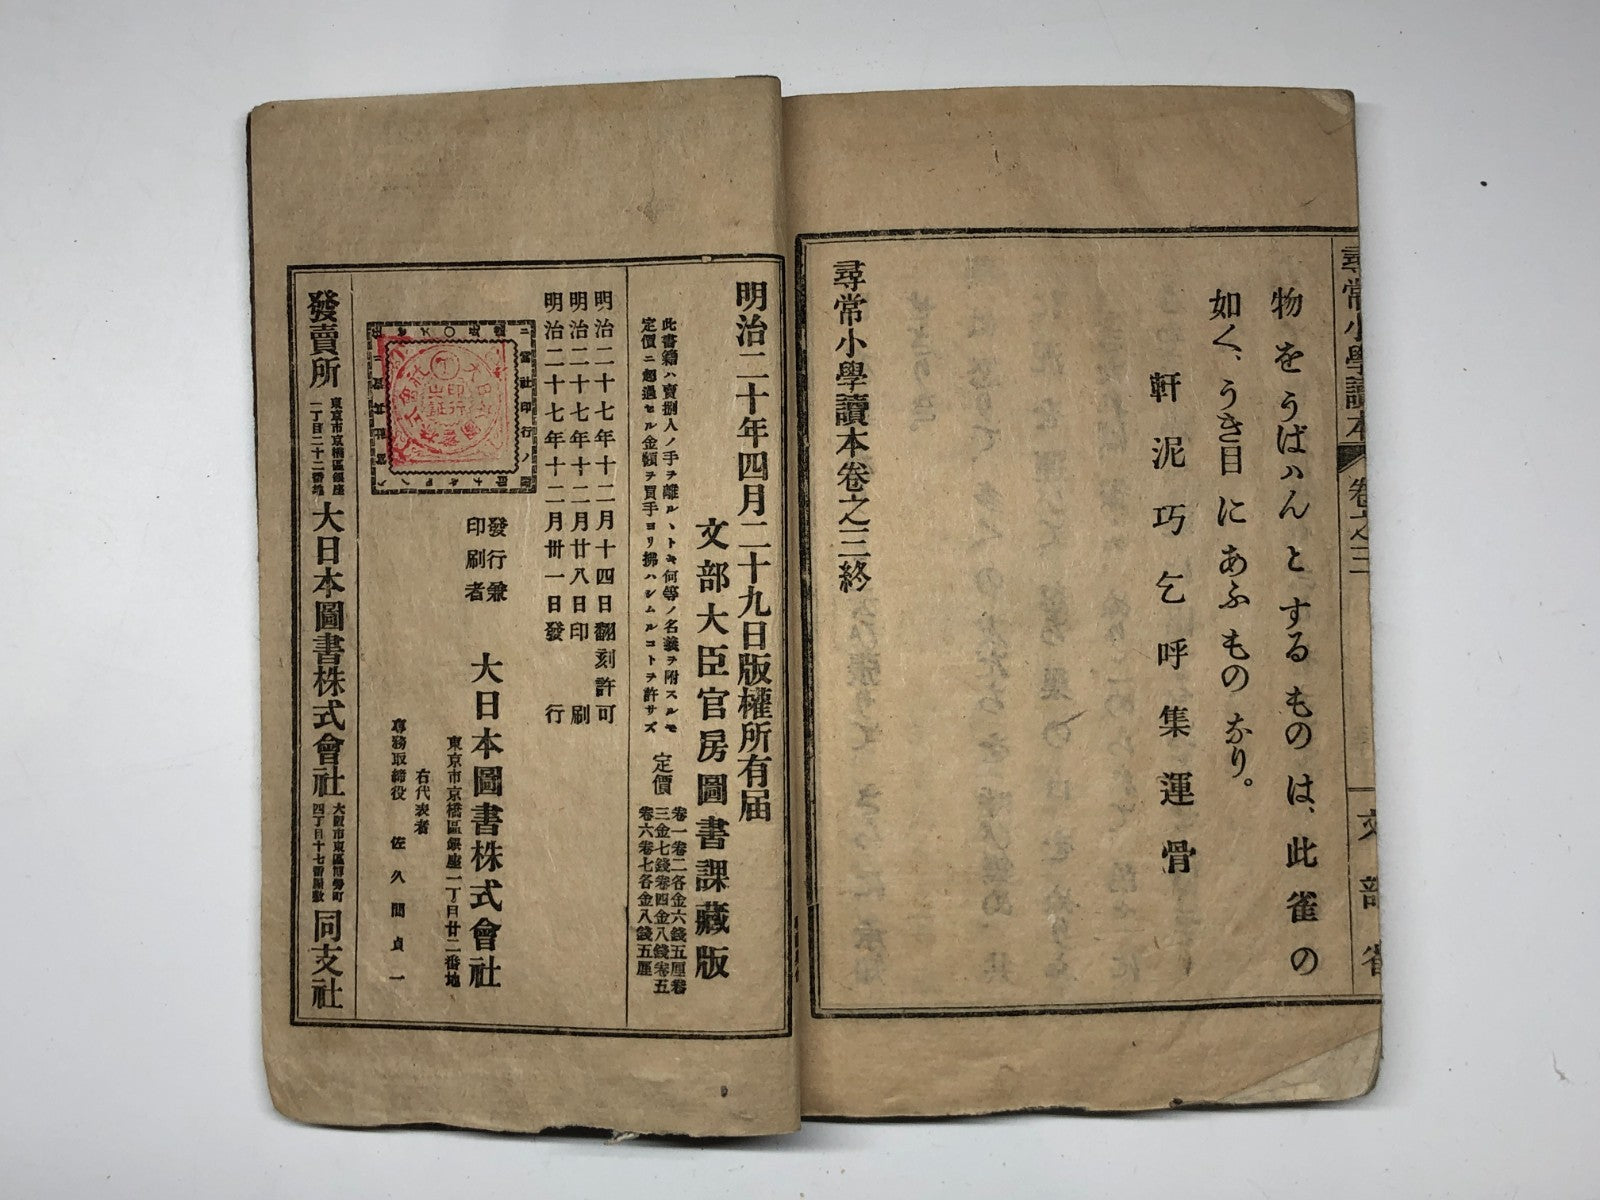 尋常小學讀本
卷之三
文部省
物をうばハんとするものは、此雀の
如く、うき目にあふものなり。
軒泥巧乞呼集運骨
尋常小學讀本卷之三終
明治二十年四月二十九日版權所有届
文部大臣官房圖書課藏版
此書籍ハ賣捌人ノ手ヲ離ルヽトキ何等ノ名義ヲ附スルモ
定價ニ超過セル金額ヲ買手ヨリ拂ハシムルコトヲ許サズ
定價
卷一卷二各金六錢五厘卷
三金七錢卷四金八錢卷五
卷六卷七各金八錢五厘
明治二十七年十二月十四日翻刻許可
明治二十七年十二月廿八日印刷
明治二十七年十二月卅一日發行
發行兼
印刷者
大日本圖書株式會社
東京市京橋區銀座一丁目廿二番地
右代表者
專務取締役 佐久間貞一
發賣所
東京市京橋區銀座
一丁目二十二番地
大日本圖書株式會社
大阪市東區博勞町
四丁目十七番屋敷
同支社